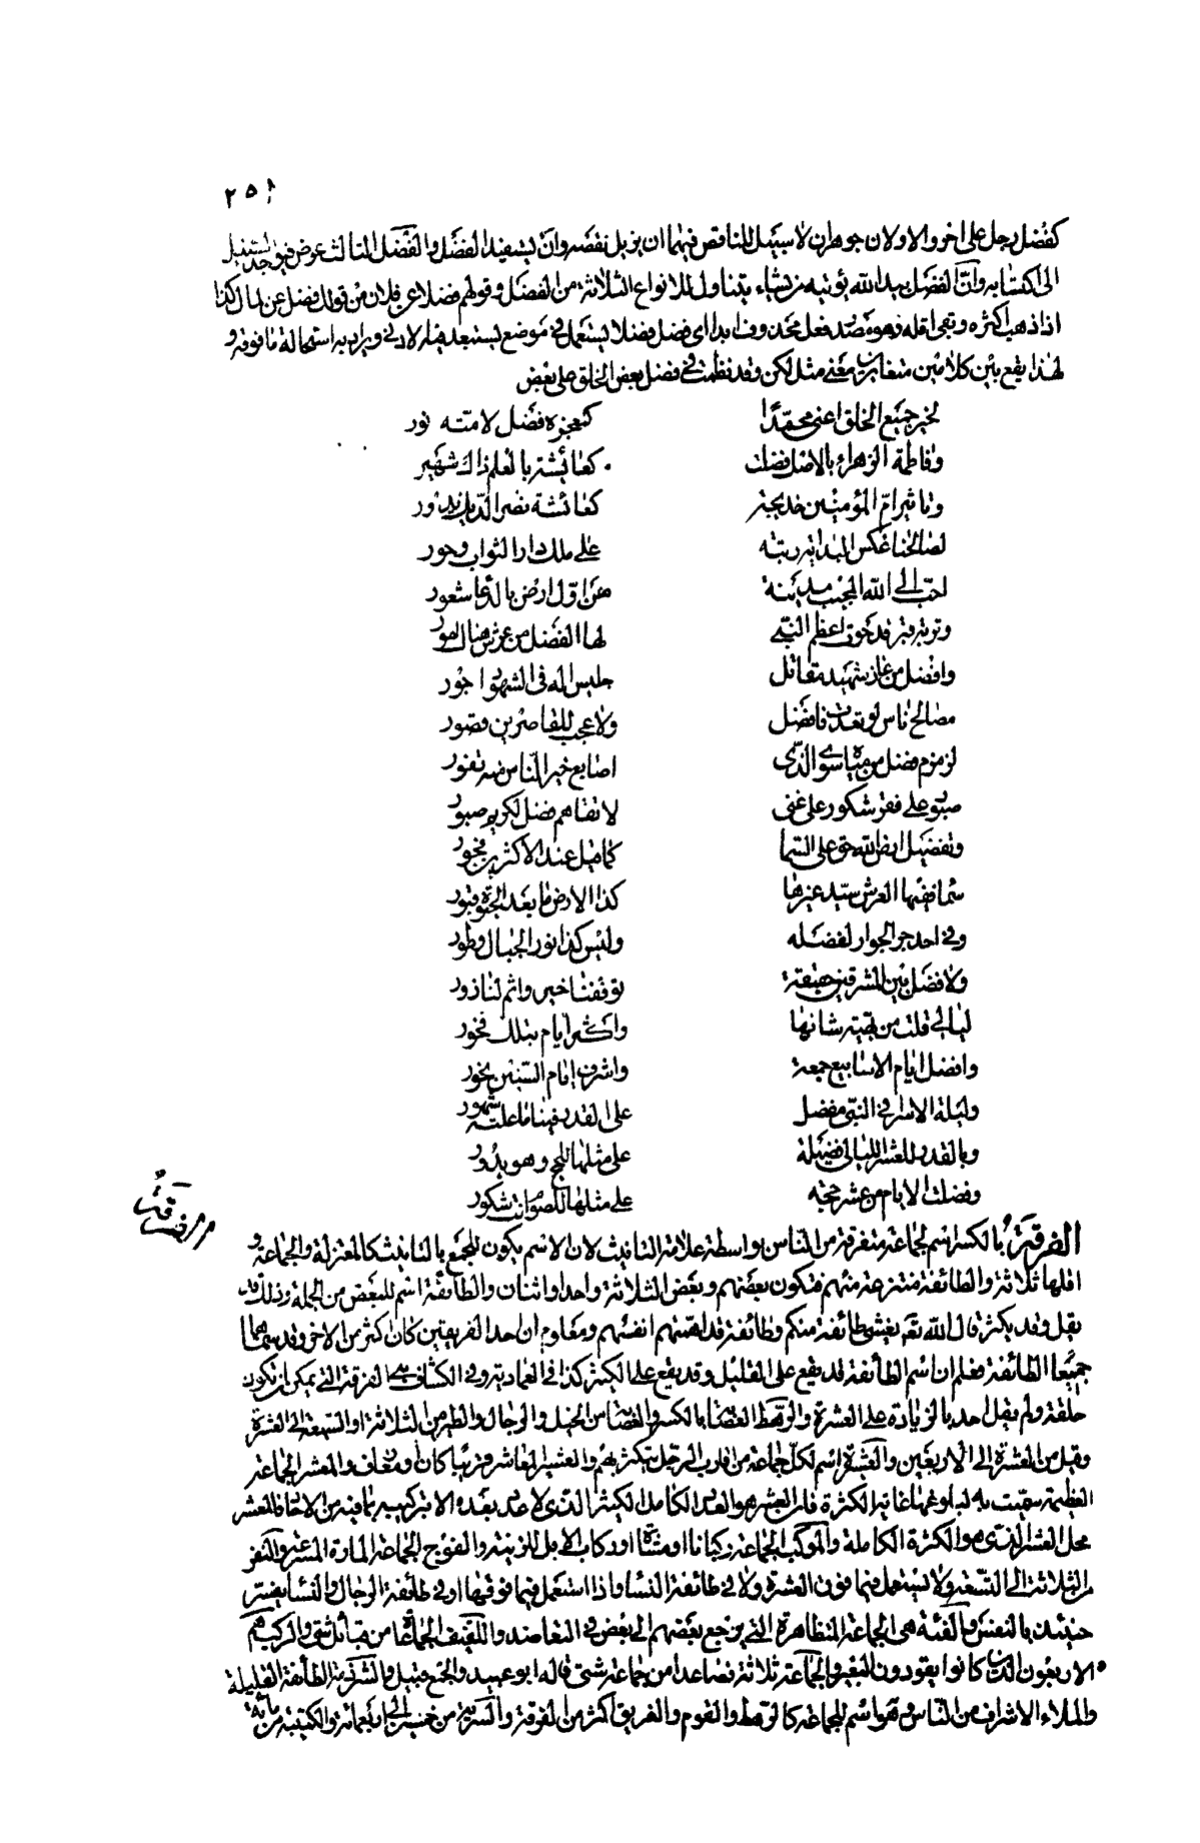 ٢٥١
كفضل رجل على آخر والاولان جوهران لا سبيل للناقص فيهما ان يزيل نقصه وان يستفيد الفضل والفضل الثالث عرضى فيوجد السبيل
الى اكتسابه وان الفضل بيد الله يؤتيه من يشاء يتناول للانواع الثلاثة من الفضل وقولهم فضلا عن فلان من قولك فضل عن المال كذا
اذا ذهب اكثره وبقى اقله وهو مصدر فعل محذوف ابدا اى فضل فضلا يستعمل فى موضع يستبعد فيه الادنى ويراد به استحالة ما فوقه و
لهذا يقع بين كلامين متغايرين معنى مثل لكن وقد نظمت فى فضل بعض الخلق على بعض
لخير جميع الخلق اعنى محمدا كمعجزه فضل لامته نور
وفاطمة الزهراء بالاصل فضلت كعائشة بالعلم ذاك شهير
وتاثير ام المؤمنين خديجة كعائشة نصر الدين
على ملك دار الثواب وحور
احب الى الله المجيب مدينة
وتربة قبر قد حوى اعظم النبى لها الفضل من عرش هناك
وافضل من غاز شهيد مقاتل
مصالح ناس ولا عجب للقاصرين قصور
لزمزم فضل من مياه سوى الذى اصابع خير الناس منه تفور
صبور على فقر شكور على غنى لانفاهم فضل لكريم صبور
وتفضيل ارض الله حق على السما كما قيل عند الاكثرين
سما فيها العرش سيد غيرها كذا الارض ما بعد وقبور
وفى احد جر الجوار لفضله وليس كذا نور الجبال وطور
ولا فضل بين المشرقين حقيقة توقفنا خير واثم لنا زور
ليالى قلت من بقية شانها واكثر ايام بتلك فخور
وافضل ايام الاسابيع جمعة واشرف ايام السنين
وليلة الاسرا فى النبى مفضل على القدر فينا ما علته شهور
وبالقدر للعشر الليالى فضيلة على مثلها للحج وهو بدور
وفضلت الايام من عشر حجة على مثلها للصوم انت شكور
الفرقة
الفرقة بالكسر اسم لجماعة متفرقة من الناس بواسطة علامة التانيث لان الاسم يكون للجمع بالتانيث كالمعتزلة والجماعة و
اقلها ثلاثة والطائفة متنزعة منهم فتكون بعضهم وبعض الثلاثة واحد او اثنان والطائفة اسم للبعض من الجملة وذلك قد
يقل وقد يكثر قال الله تعالى يغشى طائفة منكم وطائفة قد اهمتهم انفسهم ومعلوم ان احد الفريقين كان اكثر من الآخر وقد سماهما
جميعا الطائفة فعلم ان اسم الطائفة قد يقع على القليل وقد يقع على الكثير كذا فى العمادية وفى الكشاف هى الفرقة التى يمكن ان تكون
حلقة ولم يقل احد بالزيادة على العشرة والرهط العصابة بالكسر والعصابة من الخيل والرجال والطير من الثلاثة او السبعة الى العشرة
وقيل من العشرة الى الاربعين والعشيرة اسم لكل جماعة من اقارب الرجل يتكثر بهم والعشير المعاشر قريبا كان او معارف والمعشر الجماعة
العظيمة سميت به لبلوغها غاية الكثرة فان العشر هو العدد الكامل الكثير الذى لا عدد بعده الا بتركيبه بما فيه من الآحاد فالمعشر
محل العشر الذى هو الكثرة الكاملة والموكب الجماعة ركبانا او مشاة او ركاب الابل للزينة والفوج الجماعة المارة المسرعة والنفر
من الثلاثة الى التسعة ولا يستعمل فيما فوق العشرة ولا فى طائفة النساء واذا استعمل فيما فوقها او فى طائفة الرجال والنساء يفسر
حينئذ بالنفس والفئة هى الجماعة المتظاهرة التى يرجع بعضهم الى بعض فى التعاضد واللفيف الجماعة من قبائل شتى والركب هم
الاربعون الذين كانوا يقودون البعير والجماعة ثلاثة فصاعدا من جماعة شتى قاله ابو عبيد والجمع قبل والشرذمة الطائفة القليلة
والملاء الاشراف من الناس وهو اسم للجماعة كالرهط والقوم والفريق اكثر من الفرقة والسرية من خمسة الى اربعمائة والكتيبة من مائة